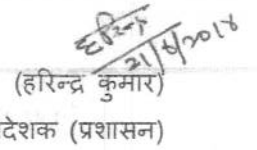 21/6/2018
(हरिन्द्र कुमार)
देशक (प्रशासन)